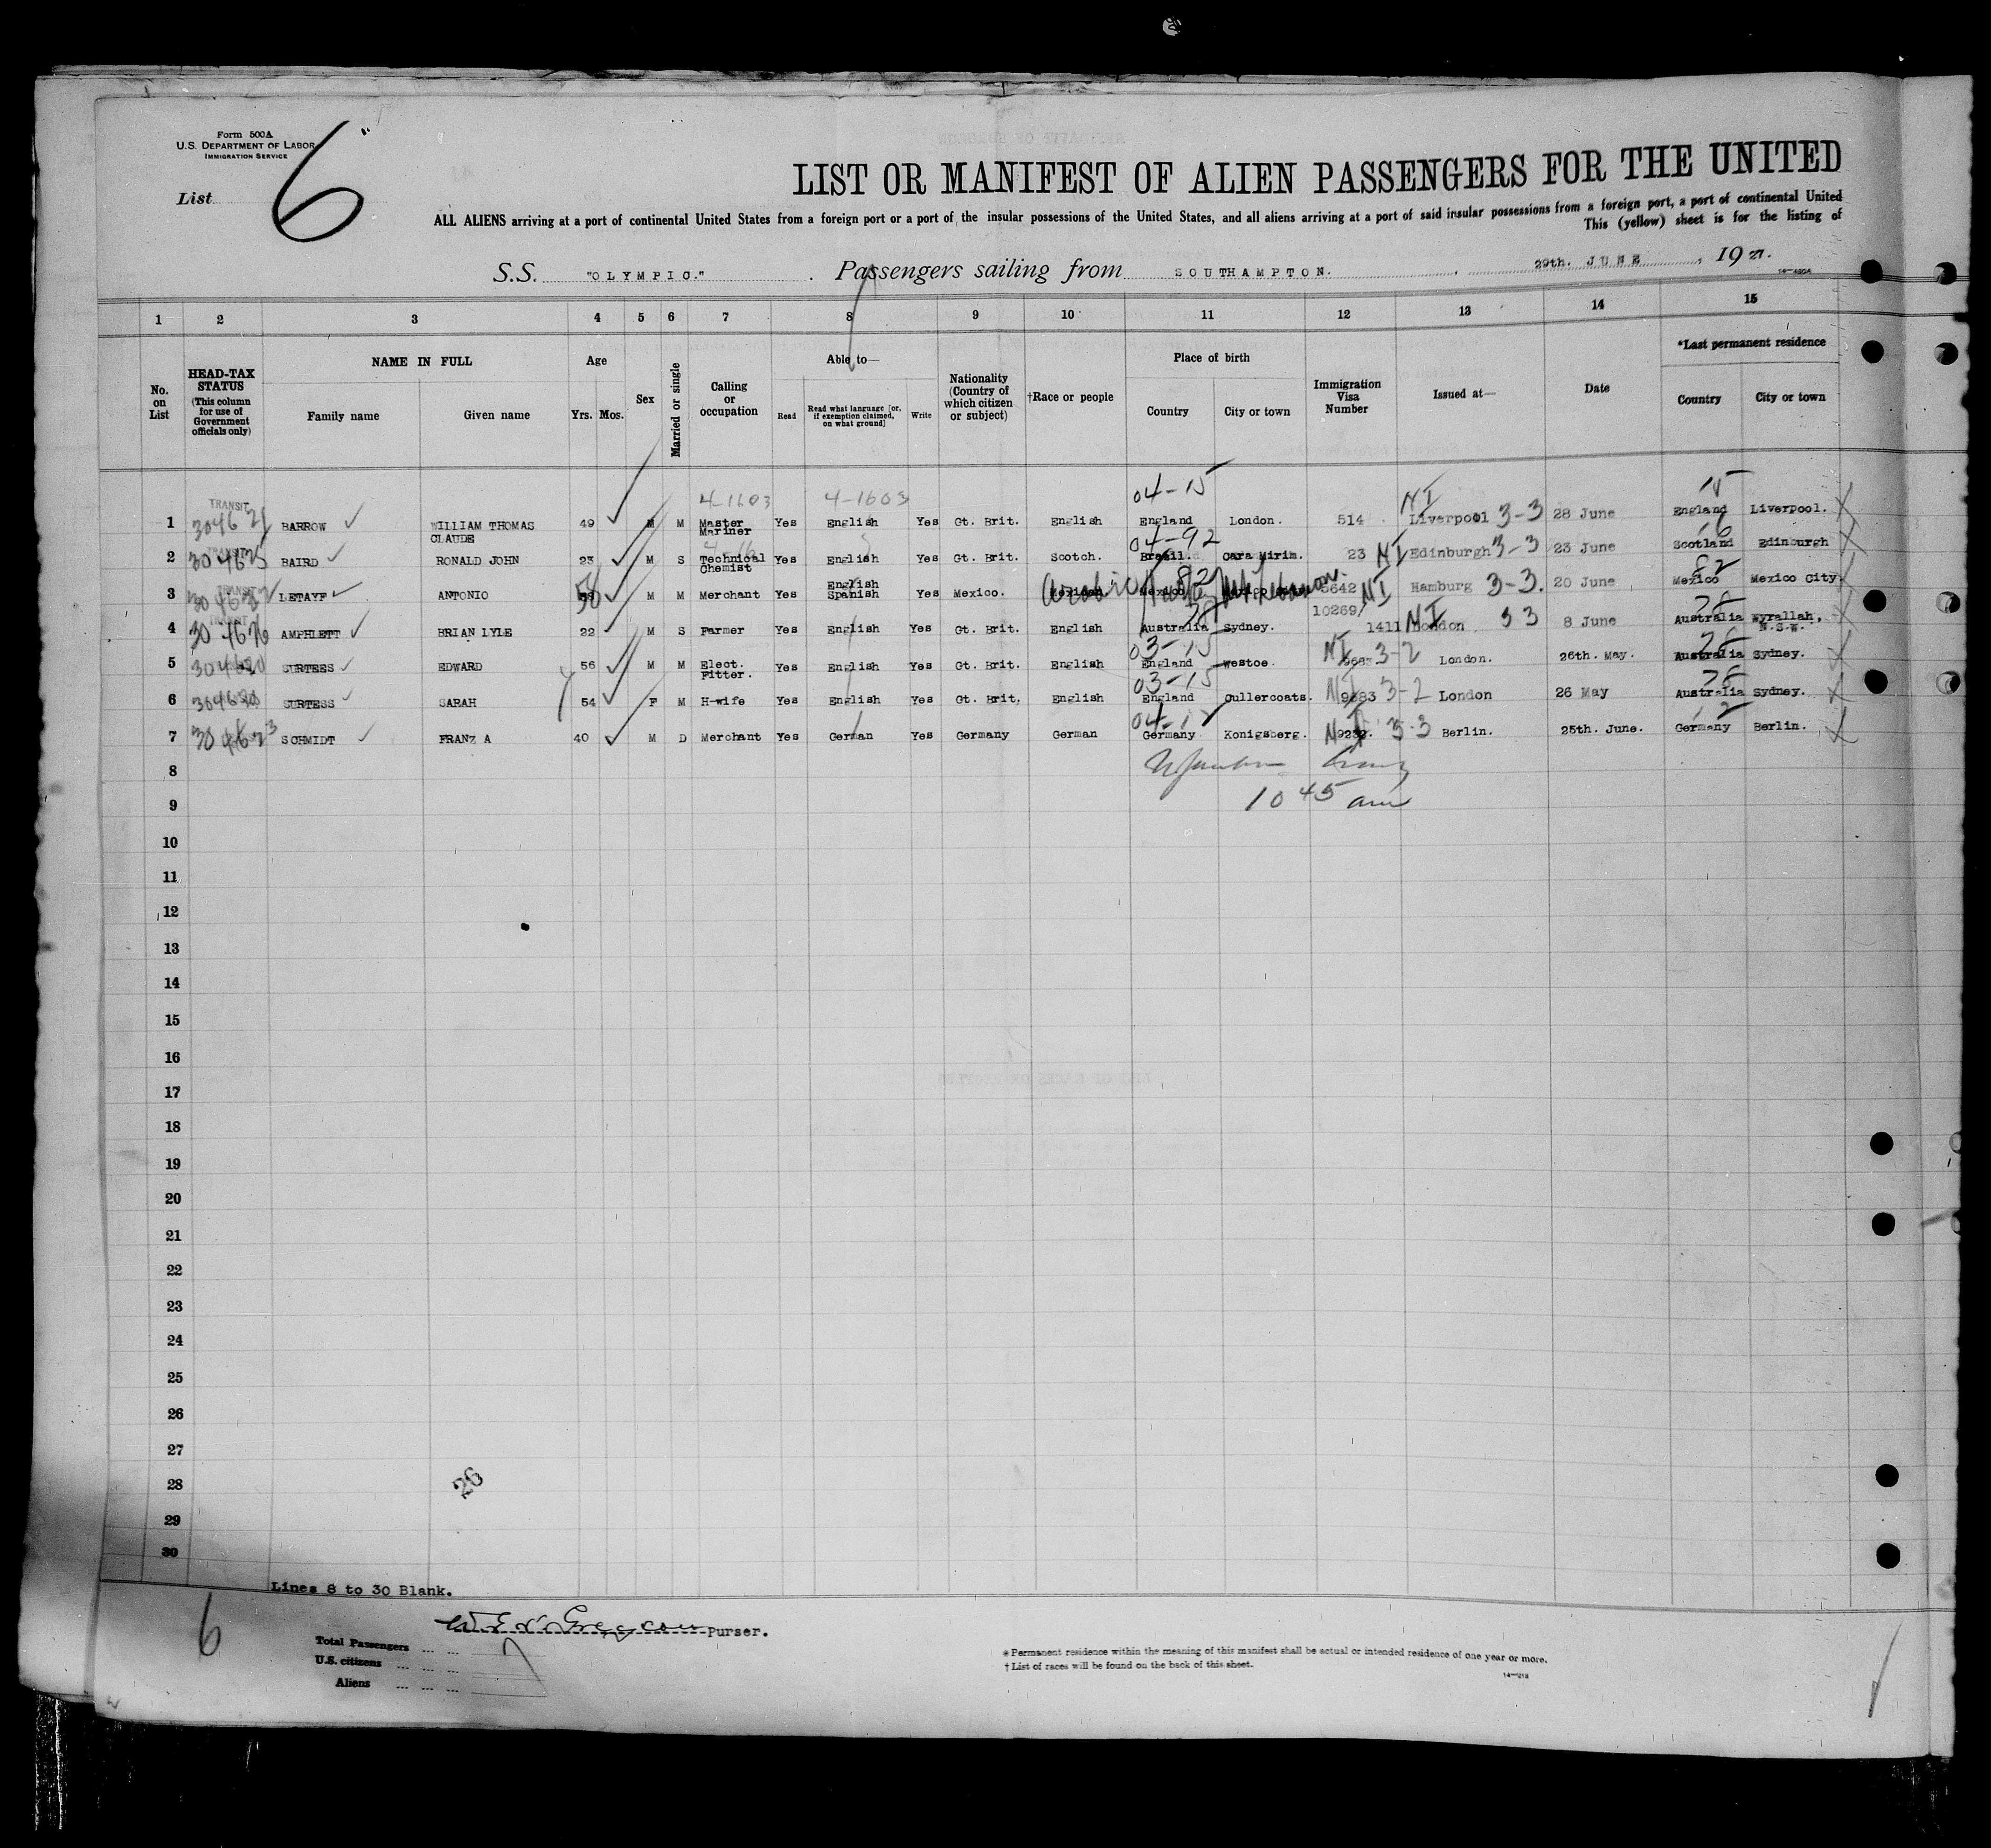 Form 500A
U.S. DEPARTMENT OF LABOR
IMMIGRATION SERVICE
List 6
LIST OR MANIFEST OF ALIEN PASSENGERS FOR THE UNITED
ALL ALIENS arriving at a port of continental United States from a foreign port or a port of the insular possessions of the United States, and all aliens arriving at a port of said insular possessions from a foreign port, a port of continental United
This (yellow) sheet is for the listing of
S.S. "OLYMPIC." Passengers sailing from SOUTHAMPTON. 29th. JUNE, 1927.
14-420A
1 2 3 4 5 6 7 8 9 10 11 12 13 14 15
No. on List
HEAD-TAX STATUS (This column for use of Government officials only)
NAME IN FULL
Family name Given name
Age
Yrs. Mos.
Sex
Married or single
Calling or occupation
Able to—
Read Read what language [or, if exemption claimed, on what ground] Write
Nationality (Country of which citizen or subject)
†Race or people
Place of birth
Country City or town
Immigration Visa Number
Issued at—
Date
*Last permanent residence
Country City or town
TRANSIT 4-1603 4-1603 04-15 NI 15
1 BARROW WILLIAM THOMAS CLAUDE 49 M M Master Mariner Yes English Yes Gt. Brit. English England London. 514 Liverpool 3-3 28 June England Liverpool.
04-92
2 BAIRD RONALD JOHN 23 M S Technical Chemist Yes English Yes Gt. Brit. Scotch. Brazil. Cara Mirim. 23 NI Edinburgh 3-3 23 June Scotland Edinburgh
82
3 LETAYF ANTONIO 56 M M Merchant Yes English Spanish Yes Mexico. Mexican Arabic Mexico Turkey Mt. Lebanon. 5642 NI Hamburg 3-3. 20 June Mexico Mexico City
4 AMPHLETT BRIAN LYLE 22 M S Farmer Yes English Yes Gt. Brit. English Australia Sydney. 10269/ 1411 NI London 33 8 June Australia Wyrallah, N.S.W.
03-15
5 SURTEES EDWARD 56 M M Elect. Fitter. Yes English Yes Gt. Brit. English England Westoe. NI 3-2 London. 26th. May. Australia Sydney.
03-15
6 SURTESS SARAH 54 F M H-wife Yes English Yes Gt. Brit. English England Cullercoats. NI 3-2 London 26 May Australia Sydney.
7 SCHMIDT FRANZ A 40 M D Merchant Yes German Yes Germany German Germany Konigsberg. 3-3 Berlin. 25th. June. Germany Berlin.
8
9 10 45 am
10
11
12
13
14
15
16
17
18
19
20
21
22
23
24
25
26
27
28 26
29
30
Lines 8 to 30 Blank.
6 Purser.
Total Passengers 7
U.S. citizens
Aliens
* Permanent residence within the meaning of this manifest shall be actual or intended residence of one year or more.
† List of races will be found on the back of this sheet.